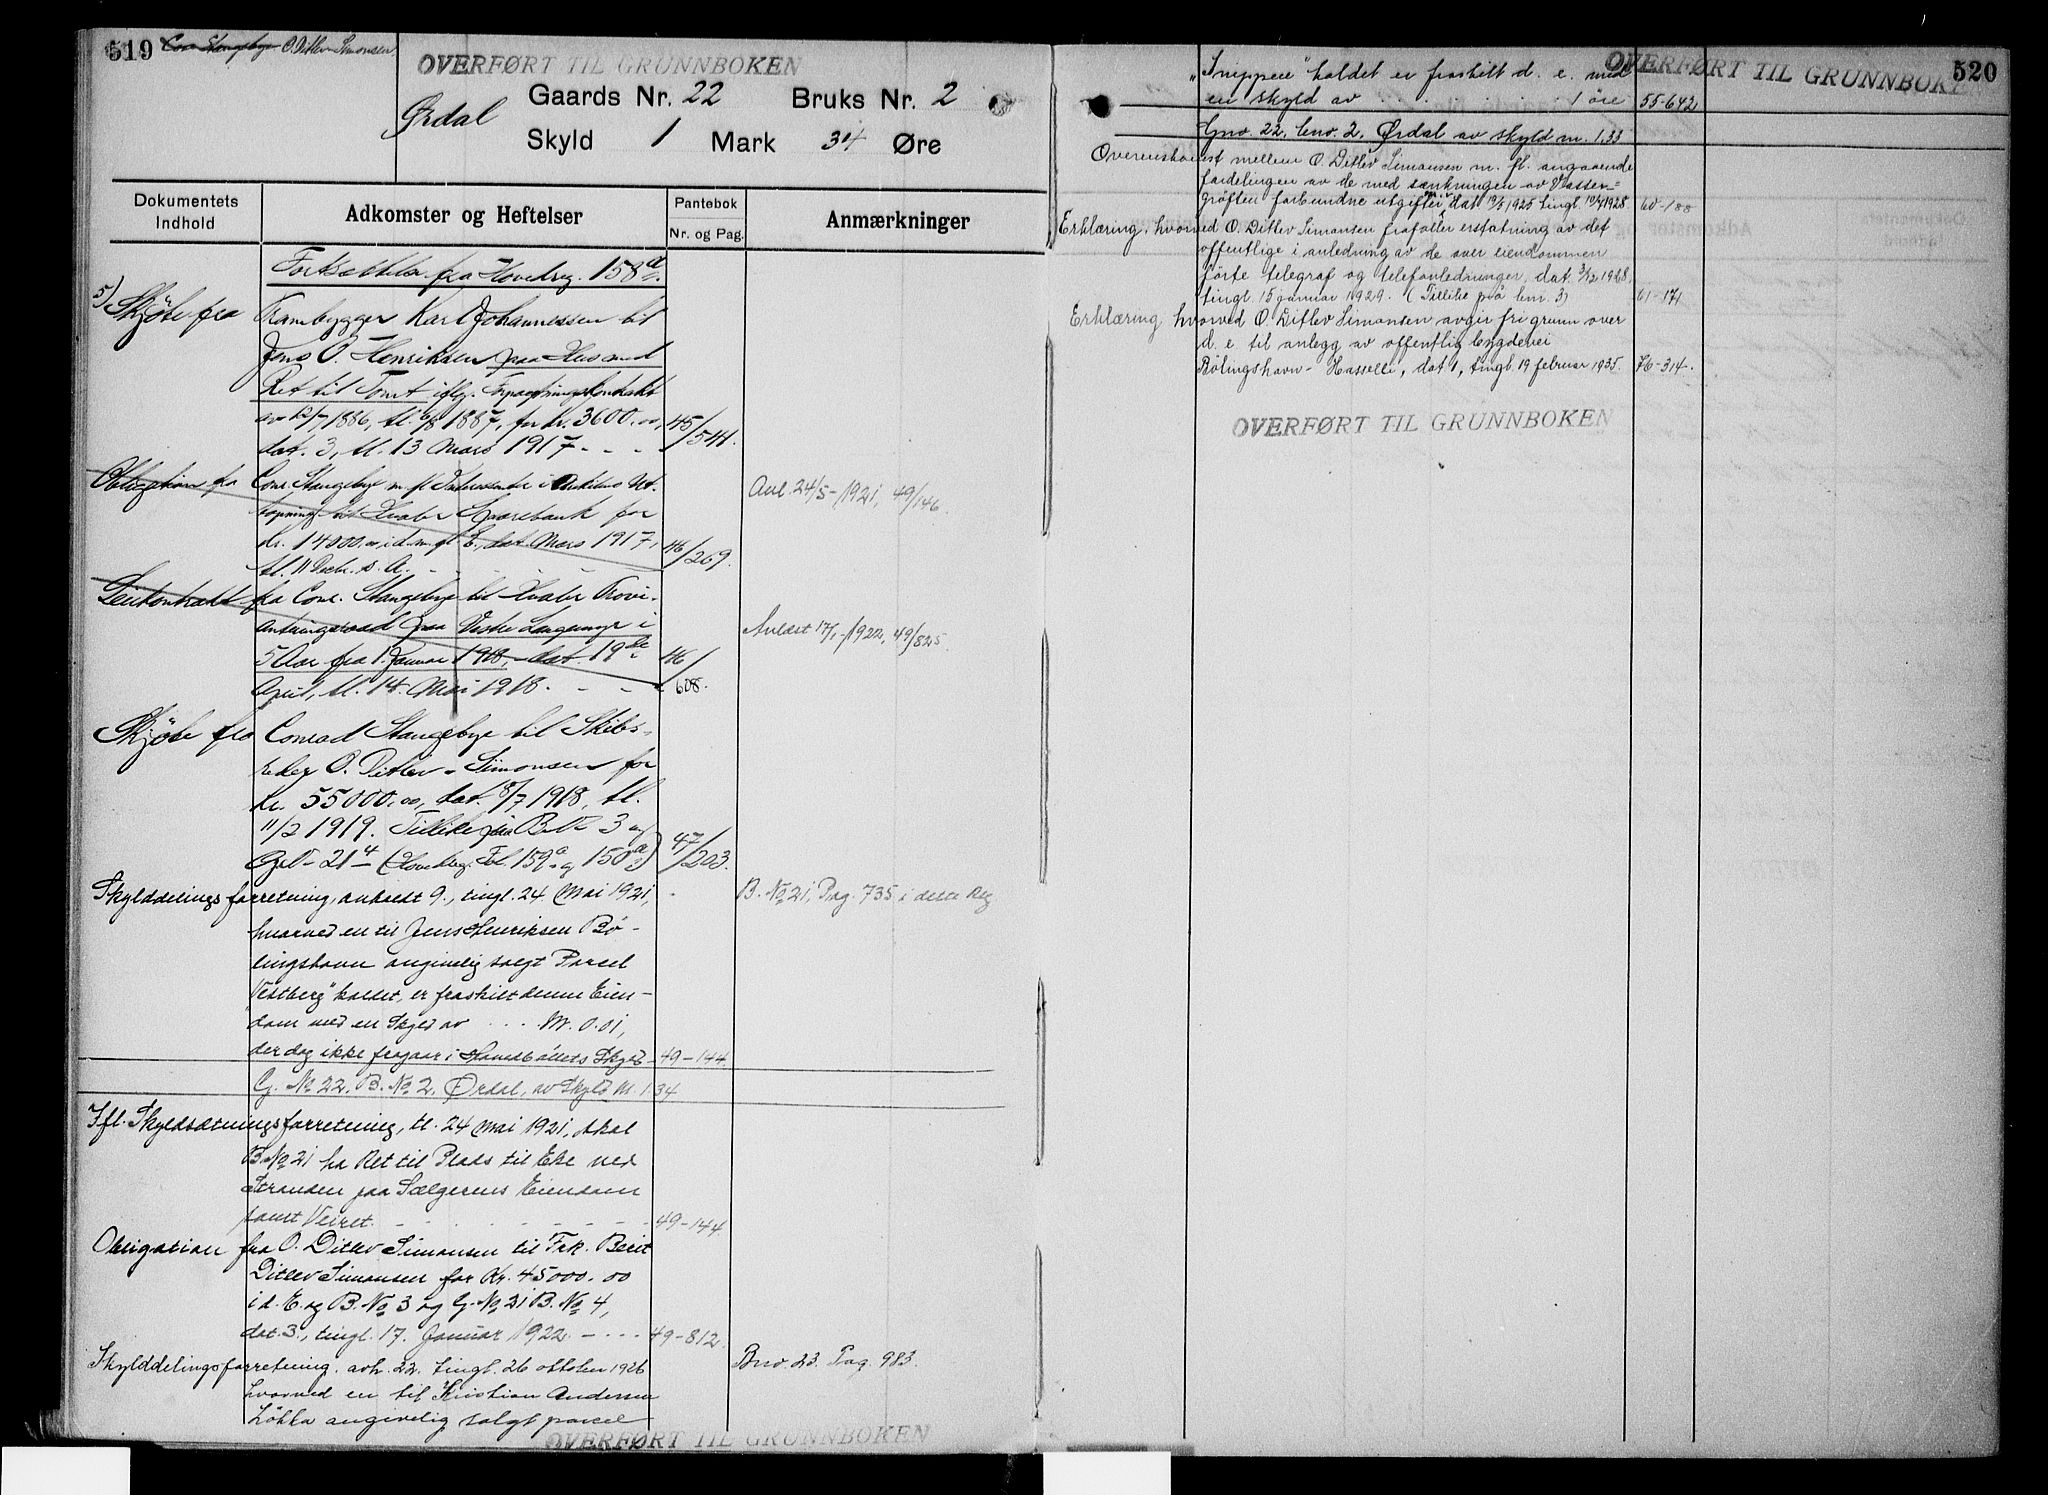 519 Con. Stangebye O. Ditlev-Simonsen
OVERFØRT TIL GRUNNBOKEN
Gaards Nr. 22 Bruks Nr. 2
Ørdal
Skyld 1 Mark 34 Øre
Dokumentets Indhold
Adkomster og Heftelser
Pantebok
Nr. og Pag.
Anmærkninger
Fortsættelse fra Hovedreg. 158a.
5) Skjöte fra Karl Johannessen til
Jens O. Henriksen paa Hus med
Ret til Tomt iflg. Forpagtningskontrakt
av 12/7 1886, tl. 6/8 1887, for kr. 3600.00, 45/541.
dat. 3, tl. 13 Mars 1917 - - -
Obligation fra Con. Stangebye m. fl. Interessenter i
til Hvaler Sparebank for
kr. 14000.00, i d. m. fl. E., dat. Mars 1917, 46/269.
tl. 11 Decbr. s. A. - -
Anl. 24/5-1921, 49/146.
Leiekontrakt fra Conr. Stangebye til Hvaler Provi-
anteringsraad paa Vestre i
5 Aar fra 1. Januar 1918, dat. 19de 46/
April, tl. 14 Mai 1918. - - 608.
Avlæst 17/1-1922, 49/825.
Skjöte fra Conrad Stangebye til Skibs-
reder O. Ditlev-Simonsen for
kr. 55000.00, dat. 8/7 1918, tl.
11/2 1919. Tillike paa B.No 3 og
G.No 21 4 (Hovedreg. Fol. 159a og 150a) 47/203.
Skylddelingsforretning, avholdt 9., tingl. 24 Mai 1921,
B. No 21, Pag. 735 i dette Reg
hvorved en til Jens Henriksen Bö-
lingshavn angivelig solgt Parsel
"Vestberg" kaldet, er fraskilt denne Eien-
dom med en Skyld av .... M. 0.01,
der dog ikke fragaar i Hovedbölets Skyld - 49-144.
G. No 22. B. No 2, Ørdal, av Skyld M. 1.34
Ifl. Skyldsætningsforretning, tl. 24 Mai 1921, skal
B No 21 ha Ret til Plads til Eke ved
Stranden paa Sælgerens Eiendom
samt Veiret. - - - - 49-144.
Obligation fra O. Ditlev Simonsen til Frk. Berit
Ditlev Simonsen for Kr. 45000.00
i d. E. og B. No 3 og G. No 21 B. No 4,
dat. 3., tingl. 17. Januar 1922. - - - 49-812.
Skylddelingsforretning, avh. 22. tingl. 26 oktober 1926
Bno 23. Pag. 983.
hvorved en til Kristian Andersen
Lökka angivelig solgt parcel
OVERFØRT TIL GRUNNBOKEN
OVERFØRT TIL GRUNNBOKEN
520
"Snippen" kaldet er fraskilt d. e. med
en skyld av . . . . . 1 öre 55-642
Gno. 22, bno. 2, Ørdal av skyld m. 1.33
Overenskomst mellem O. Ditlev Simonsen m. fl. angaaende
fordelingen av de med sænkningen av Vasser-
gröften forbundne utgifter, dat 19/5 1925 tingl. 10/4 1928 60-188
Erklæring, hvorved O. Ditlev Simonsen frafaller erstatning av det
offentlige i anledning av de over eiendommen
förte telegraf og telefonledninger, dat. 3/12 1928,
tingl. 15 januar 1929. (Tillike på bnr. 3) 61-171
Erklæring hvorved O. Ditlev Simonsen avgir fri grunn over
d. e. til anlegg av offentlig bygdevei
Bölingshavn - Hasselli, dat 1, tingl. 19 februar 1935. 76-314.
OVERFØRT TIL GRUNNBOKEN